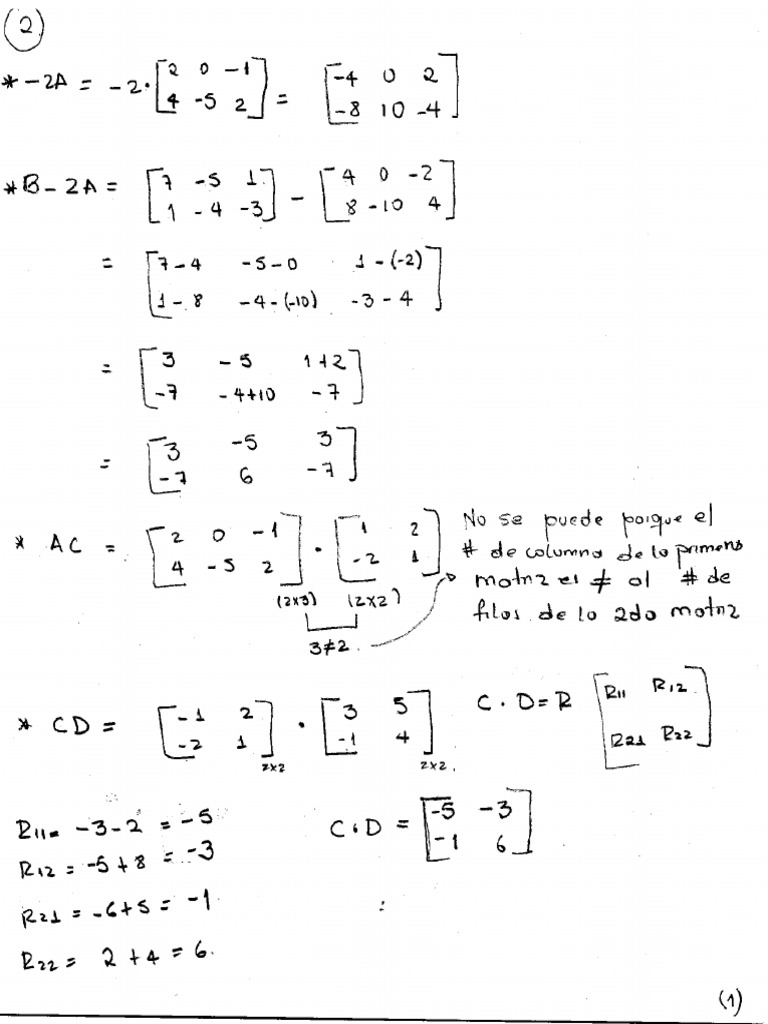 (2)
* -2A = -2 · [2 0 -1; 4 -5 2] = [-4 0 2; -8 10 -4]
* B - 2A = [7 -5 1; 1 -4 -3] - [4 0 -2; 8 -10 4]
= [7-4 -5-0 1-(-2); 1-8 -4-(-10) -3-4]
= [3 -5 1+2; -7 -4+10 -7]
= [3 -5 3; -7 6 -7]
* AC = [2 0 -1; 4 -5 2] · [1 2; -2 1]
(2x3) (2x2)
3≠2
No se puede porque el
# de columna de la primera
matriz es ≠ al # de
filas de la 2da matriz
* CD = [-1 2; -2 1] 2x2 · [3 5; -1 4] 2x2.
C · D = R [R11 R12; R21 R22]
R11 = -3-2 = -5
R12 = -5+8 = -3
R21 = -6+5 = -1
R22 = 2+4 = 6.
C·D = [-5 -3; -1 6]
(1)